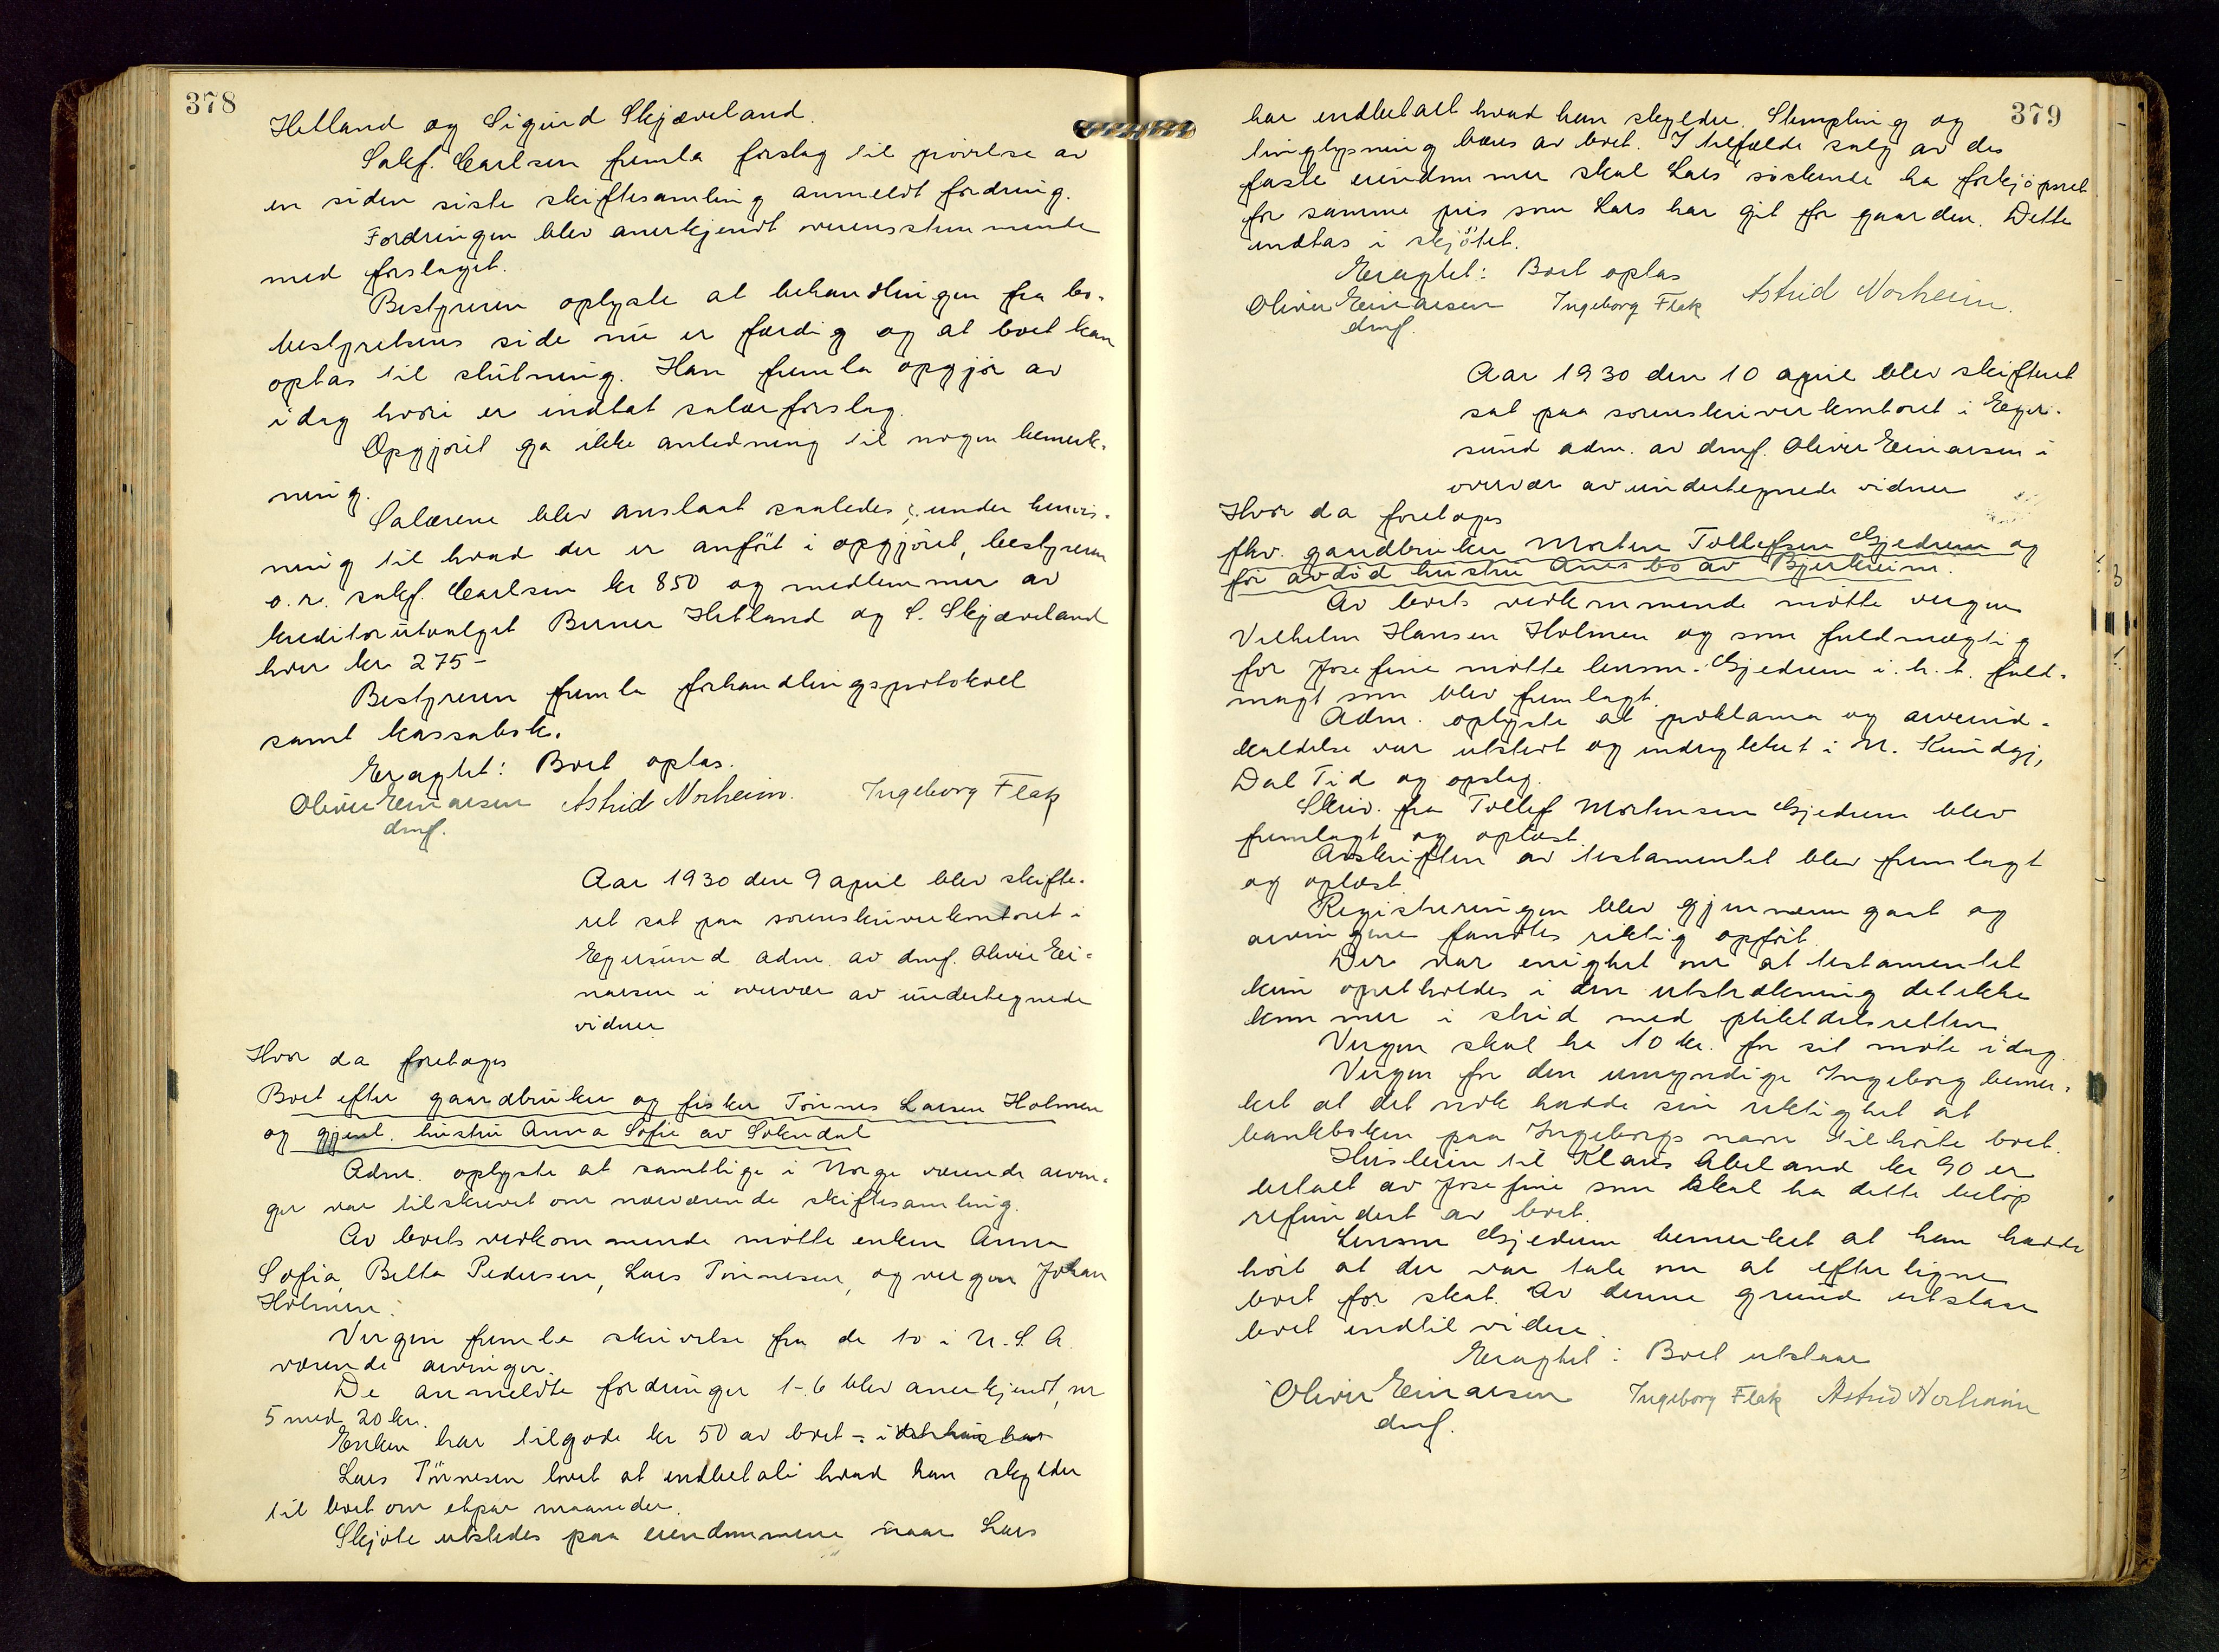 378
Hetland og Sigurd Skjæveland.
Sakf. Carlsen fremla forslag til prøvelse av
en siden siste skiftesamling anmeldt fordring.
Fordringen blev anerkjendt overensstemmende
med forslaget.
Bestyreren oplyste at behandlingen fra bo-
bestyrelsens side nu er færdig og at boet kan
optas til slutning. Han fremla opgjør av
idag hvori er indtat salærforslag.
Opgjøret ga ikke anledning til nogen bemerk-
ning.
Salærene blev anslaat saaledes, under henvis-
ning til hvad der er anført i opgjøret, bestyreren
o.r. sakf. Carlsen kr 850 og medlemmer av
kreditorutvalget Berner Hetland og S. Skjæveland
hver kr 275-
Bestyreren fremla forhandlingsprotokoll
samt kassabok.
Eragtet: Boet optas.
Oliver Einarsen Astrid Norheim. Ingeborg Flak
dmf.
Aar 1930 den 9 april blev skifte-
ret sat paa sorenskriverkontoret i
Egersund adm. av dmf. Oliver Ei-
narsen i overvær av undertegnede
vidner
Hvor da foretoges
Boet efter gaardbruker og fisker Tønnes Larsen Holmen
og gjenl. hustru Anna Sofie av Sokndal
Adm. oplyste at samtlige i Norge værende arvin-
ger var tilskrevet om nærværende skiftesamling.
Av boets vedkommende møtte enken Anna
Sofia, Betta Pedersen, Lars Tønnesen, og vergen Johan
Holmen.
Vergen fremla skrivelse fra de to i U.S.A.
værende arvinger.
De anmeldte fordringer 1-6 blev anerkjendt, nr
5 med 20 kr.
Enken har tilgode kr 50 av boet -
Lars Tønnesen lovet at indbetale hvad han skylder
til boet om etpar maaneder.
Skjøte utstedes paa eiendommene naar Lars
379
har indbetalt hvad han skylder. Stempling og
tinglysning bæres av boet. I tilfælde salg av des
faste eiendommer skal Lars' søskende ha forkjøpsret
for samme pris som Lars har git for gaarden. Dette
indtas i skjøtet.
Eragtet: Boet optas
Oliver Einarsen Ingeborg Flak Astrid Norheim.
dmf.
Aar 1930 den 10 april blev skifteret
sat paa sorenskriverkontoret i Eger-
sund adm. av dmf. Oliver Einarsen i
overvær av undertegnede vidner
Hvor da foretoges
fhv. gaardbruker Morten Tollefsen Gjedrem og
før avdød hustru Anes bo av Bjerkreim.
Av boets vedkommende møtte vergen
Vilhelm Hansen Holmen og som fuldmægtig
for Josefine møtte lensm. Gjedrem i.h.t. fuld-
magt som blev fremlagt.
Adm. oplyste at proklama og arveind-
kaldelse var utstedt og indrykket i N. Kundgj,
Dal. Tid og opslag.
Skriv. fra Tollef Mortensen Gjedrem blev
fremlagt og oplæst.
Avskriften av testamentet blev fremlagt
og oplæst.
Registreringen blev gjennemgaat og
arvingene fandtes riktig opført.
Der var enighet om at testamentet
kun opretholdes i den utstrækning det ikke
kommer i strid med pliktdelsretten.
Vergen skal ha 10 kr. for sit møte idag.
Vergen for den umyndige Ingeborg bemer-
ket at det nok hadde sin riktighet at
bankboken paa Ingeborgs navn tilhørte boet.
Husleien til Klaus Abeland kr 90 er
betalt av Josefine som skal ha dette beløp
refundert av boet.
Lensm Gjedrem bemerket at han hadde
hørt at der var tale om at efterligne
boet for skat. Av denne grund utstaar
boet indtil videre.
Eragtet: Boet utstaar
Oliver Einarsen Ingeborg Flak Astrid Norheim
dmf.